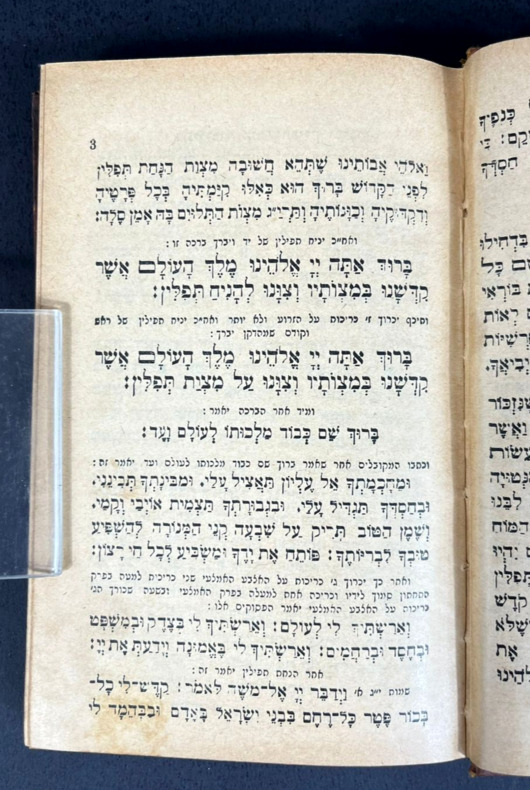 3
וֵאלֹהֵי אֲבוֹתֵינוּ שֶׁתְּהֵא חֲשׁוּבָה מִצְוַת הַנָּחַת תְּפִלִּין
לִפְנֵי הַקָּדוֹשׁ בָּרוּךְ הוּא כְּאִלּוּ קִיַּמְתִּיהָ בְּכָל פְּרָטֶיהָ
וְדִקְדּוּקֶיהָ וְכַוָּנוֹתֶיהָ וְתַרְיַ״ג מִצְוֹת הַתְּלוּיִם בָּהּ אָמֵן סֶלָה׃
ואח״כ יניח תפילין של יד ויברך ברכה זו:
בָּרוּךְ אַתָּה יְיָ אֱלֹהֵינוּ מֶלֶךְ הָעוֹלָם אֲשֶׁר
קִדְּשָׁנוּ בְּמִצְוֹתָיו וְצִוָּנוּ לְהָנִיחַ תְּפִלִּין׃
ותיכף יכרוך ז׳ כריכות על הזרוע ולא יותר ואח״כ יניח תפילין של ראש
וקודם שמהדקן יברך:
בָּרוּךְ אַתָּה יְיָ אֱלֹהֵינוּ מֶלֶךְ הָעוֹלָם אֲשֶׁר
קִדְּשָׁנוּ בְּמִצְוֹתָיו וְצִוָּנוּ עַל מִצְוַת תְּפִלִּין׃
ומיד אחר הברכה יאמר:
בָּרוּךְ שֵׁם כְּבוֹד מַלְכוּתוֹ לְעוֹלָם וָעֶד׃
וכתבו המקובלים אחר שאמר ברוך שם כבוד מלכותו לעולם ועד יאמר זה:
וּמֵחָכְמָתְךָ אֵל עֶלְיוֹן תַּאֲצִיל עָלַי. וּמִבִּינָתְךָ תְּבִינֵנִי.
וּבְחַסְדְּךָ תַּגְדִּיל עָלַי. וּבִגְבוּרָתְךָ תַּצְמִית אוֹיְבַי וְקָמַי.
וְשֶׁמֶן הַטּוֹב תָּרִיק עַל שִׁבְעָה קְנֵי הַמְּנוֹרָה לְהַשְׁפִּיעַ
טוּבְךָ לִבְרִיּוֹתֶךָ׃ פּוֹתֵחַ אֶת יָדֶךָ וּמַשְׂבִּיעַ לְכָל חַי רָצוֹן׃
ואחר כך יכרוך ג׳ כריכות על האלבע האמלעי שני כריכות למטה בפרק
התחתון סמוך לידיו וכריכה אחת למעלה בפרק האמלעי ובשעה שכורך הג׳
כריכות על האלבע האמלעי יאמר הפסוקים אלו:
וְאֵרַשְׂתִּיךְ לִי לְעוֹלָם׃ וְאֵרַשְׂתִּיךְ לִי בְּצֶדֶק וּבְמִשְׁפָּט
וּבְחֶסֶד וּבְרַחֲמִים׃ וְאֵרַשְׂתִּיךְ לִי בֶּאֱמוּנָה וְיָדַעַתְּ אֶת יְיָ׃
אחר הנחת תפילין יאמר זה:
שמות י״ג א׳ וַיְדַבֵּר יְיָ אֶל־מֹשֶׁה לֵּאמֹר׃ קַדֶּשׁ־לִי כָל־
בְּכוֹר פֶּטֶר כָּל־רֶחֶם בִּבְנֵי יִשְׂרָאֵל בָּאָדָם וּבַבְּהֵמָה לִי
כְּנָפֶיךָ
חַסְדֶּךָ
כָּל
רְאוֹת
וַאֲשֶׁר
לִבֵּנוּ
תְּפִלִּין
קֹדֶשׁ
שֶׁלֹּא
אֶת